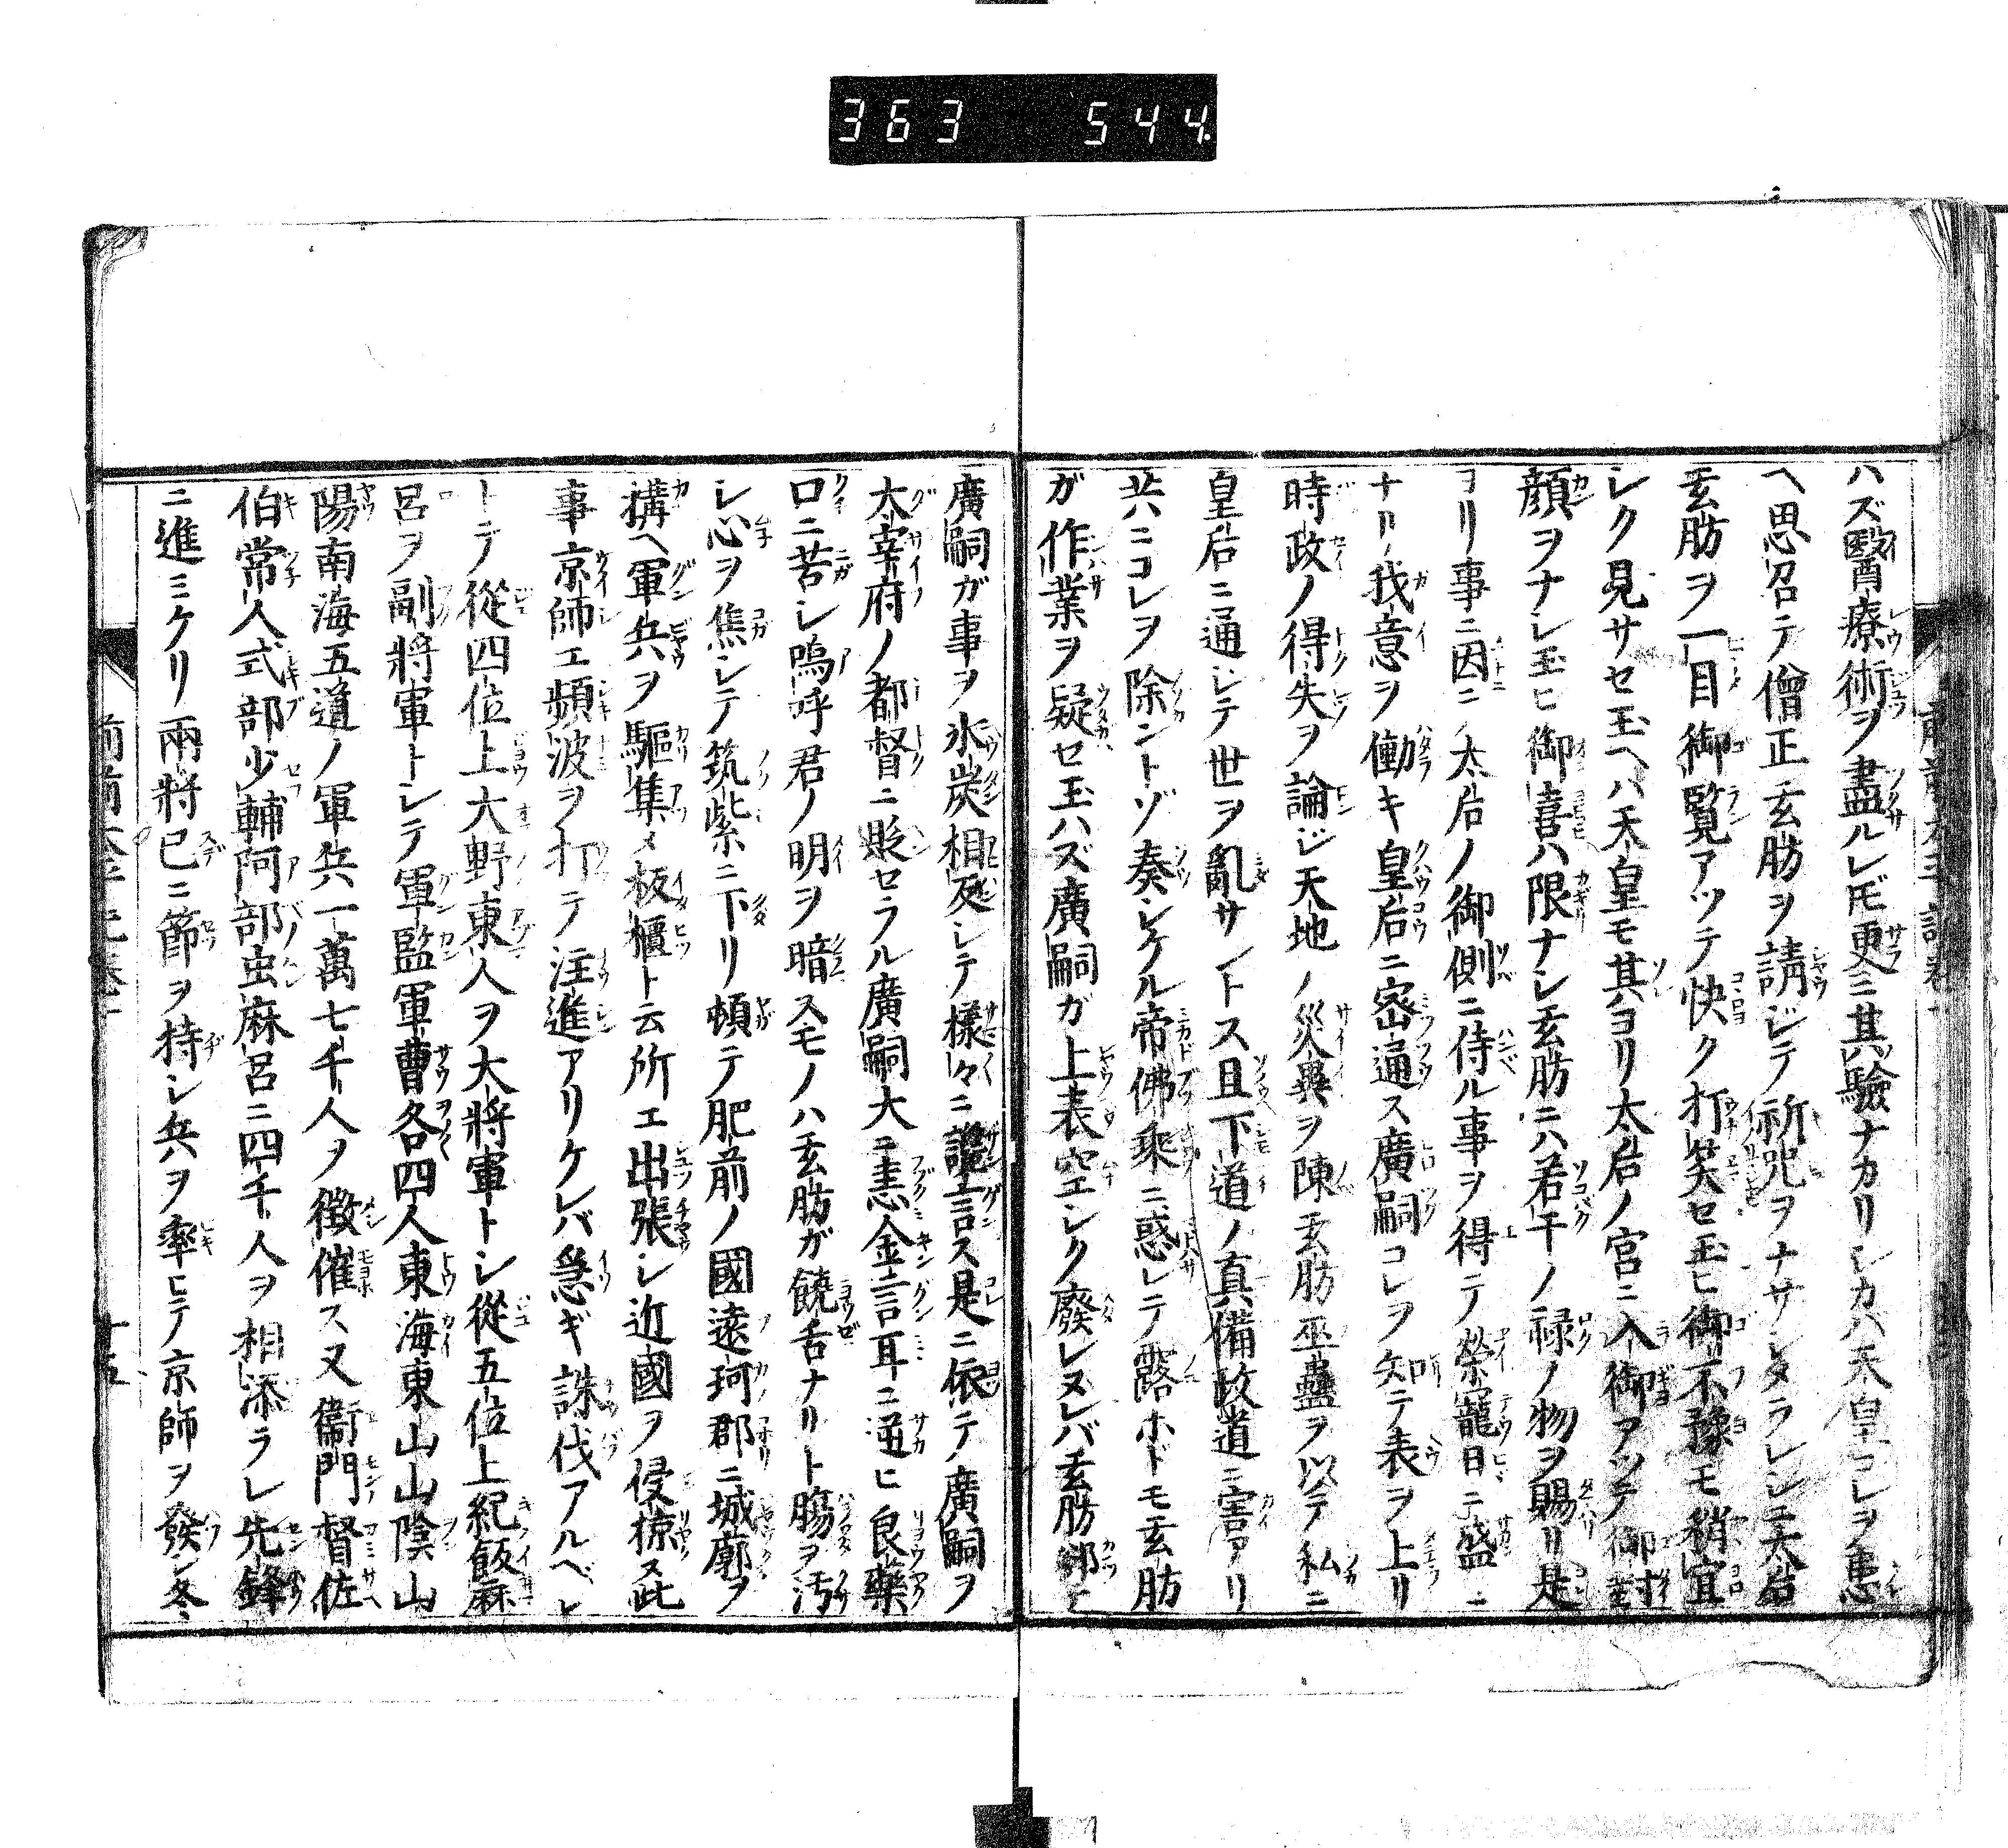 363 544
ハズ醫療術ヲ盡ルレ𪜈更ニ其驗ナカリシカハ天皇コレヲ患
ヘ思召テ僧正玄肪ヲ請ジテ祈咒ヲナサシメラレシニ太后
玄肪ヲ一目御覧アツテ快ク打笑セ玉ヒ御不豫モ稍宜
シク見サセ玉ヘハ天皇モ其ヨリ太后ノ宮ニ入御アツテ御對
顔ヲナシ玉ヒ御喜ハ限ナシ玄肪ニハ若干ノ禄ノ物ヲ賜リ是
ヨリ事ニ因ニ太后ノ御側ニ侍ル事ヲ得テ榮寵日ニ盛ニ
ナリ我意ヲ働キ皇后ニ密通ス廣嗣コレヲ知テ表ヲ上リ
時政ノ得失ヲ論ジ天地ノ災異ヲ陳玄肪巫蠱ヲ以テ私ニ
皇后ニ通シテ世ヲ亂サントス且下道ノ真備政道ニ害アリ
共ニコレヲ除ントゾ奏シケル帝佛乘ニ惑レテ露ホドモ玄肪
ガ作業ヲ疑セ玉ハズ廣嗣ガ上表空シク廢レヌレバ玄肪却テ
廣嗣ガ事ヲ氷炭相反シテ樣々ニ讒言ス是ニ依テ廣嗣ヲ
太宰府ノ都督ニ貶セラル廣嗣大ニ恚金言耳ニ逆ヒ良藥
口ニ苦シ嗚呼君ノ明ヲ暗スモノハ玄肪ガ饒舌ナリト膓ヲ汚
シ心ヲ焦シテ筑紫ニ下リ頓テ肥前ノ國遠珂郡ニ城廓ヲ
搆ヘ軍兵ヲ驅集メ板櫃ト云所エ出張シ近國ヲ侵掠ス此
事京師エ頻波ヲ打テ注進アリケレバ急ギ誅伐アルヘシ
トテ從四位上大野東人ヲ大將軍トシ從五位上紀飯麻
呂ヲ副將軍トシテ軍監軍曹各四人東海東山山陰山
陽南海五道ノ軍兵一萬七千人ヲ徴催ス又衞門督佐
伯常人式部少輔阿部虫麻呂ニ四千人ヲ相添ラレ先鋒
ニ進ミケリ兩將已ニ節ヲ持シ兵ヲ率ヒテ京師ヲ發シ冬
前前太平記卷一 十五